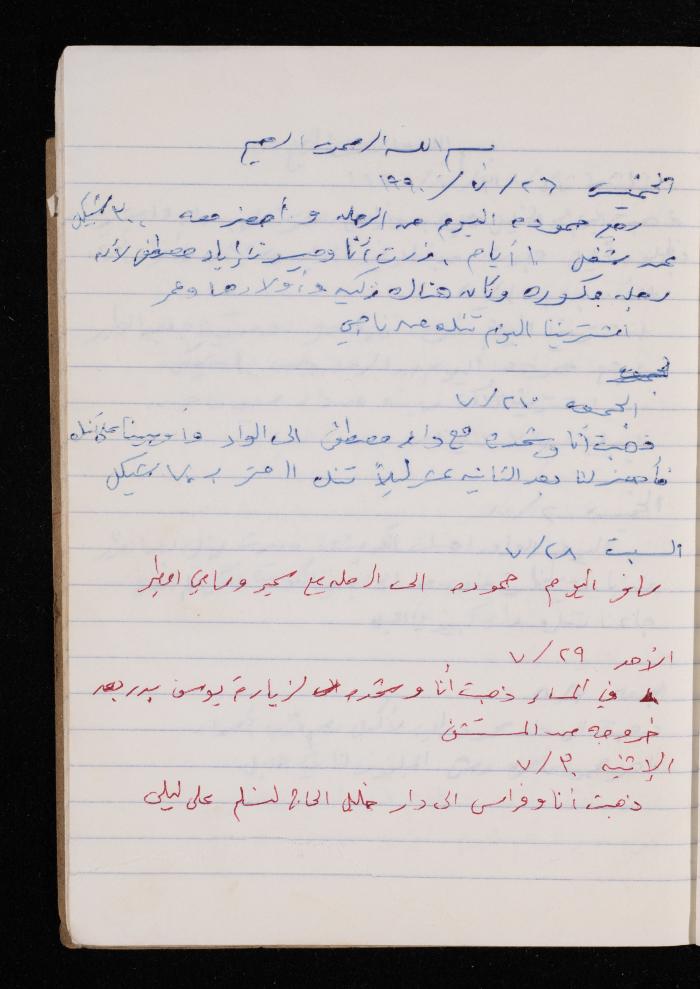 بسم الله الرحمن الرحيم
الخميس ٢٦/٧/١٩٩٠
رجع حموده اليوم من الرحله و أحضر معه ٣٠٠ شيكل
عن شغل ١٠ أيام. زرت أنا و إياد مصطفى لأنه
رجله مكسوره وكان هناك زكيه وأولادها وعمر
اشترينا اليوم تنك من ناجي
الجمعه
الجمعه ٢٧/٧
ذهبت أنا و مع دار مصطفى الى الواد وا على تنك
فأحضر لنا بعد الثانيه عشر ليلاً تنك ١١ متر ب ٧٠ شيكل
السبت ٢٨/٧
سافر اليوم حموده الى الرحله مع سمير
الأحد ٢٩/٧
في المساء ذهبت أنا و لزيارة يوسف بدر بعد
خروجه من المستشفى
الإثنين ٣٠/٧
ذهبت أنا وفراس الى دار خليل الحاج لنسلم على ليلى